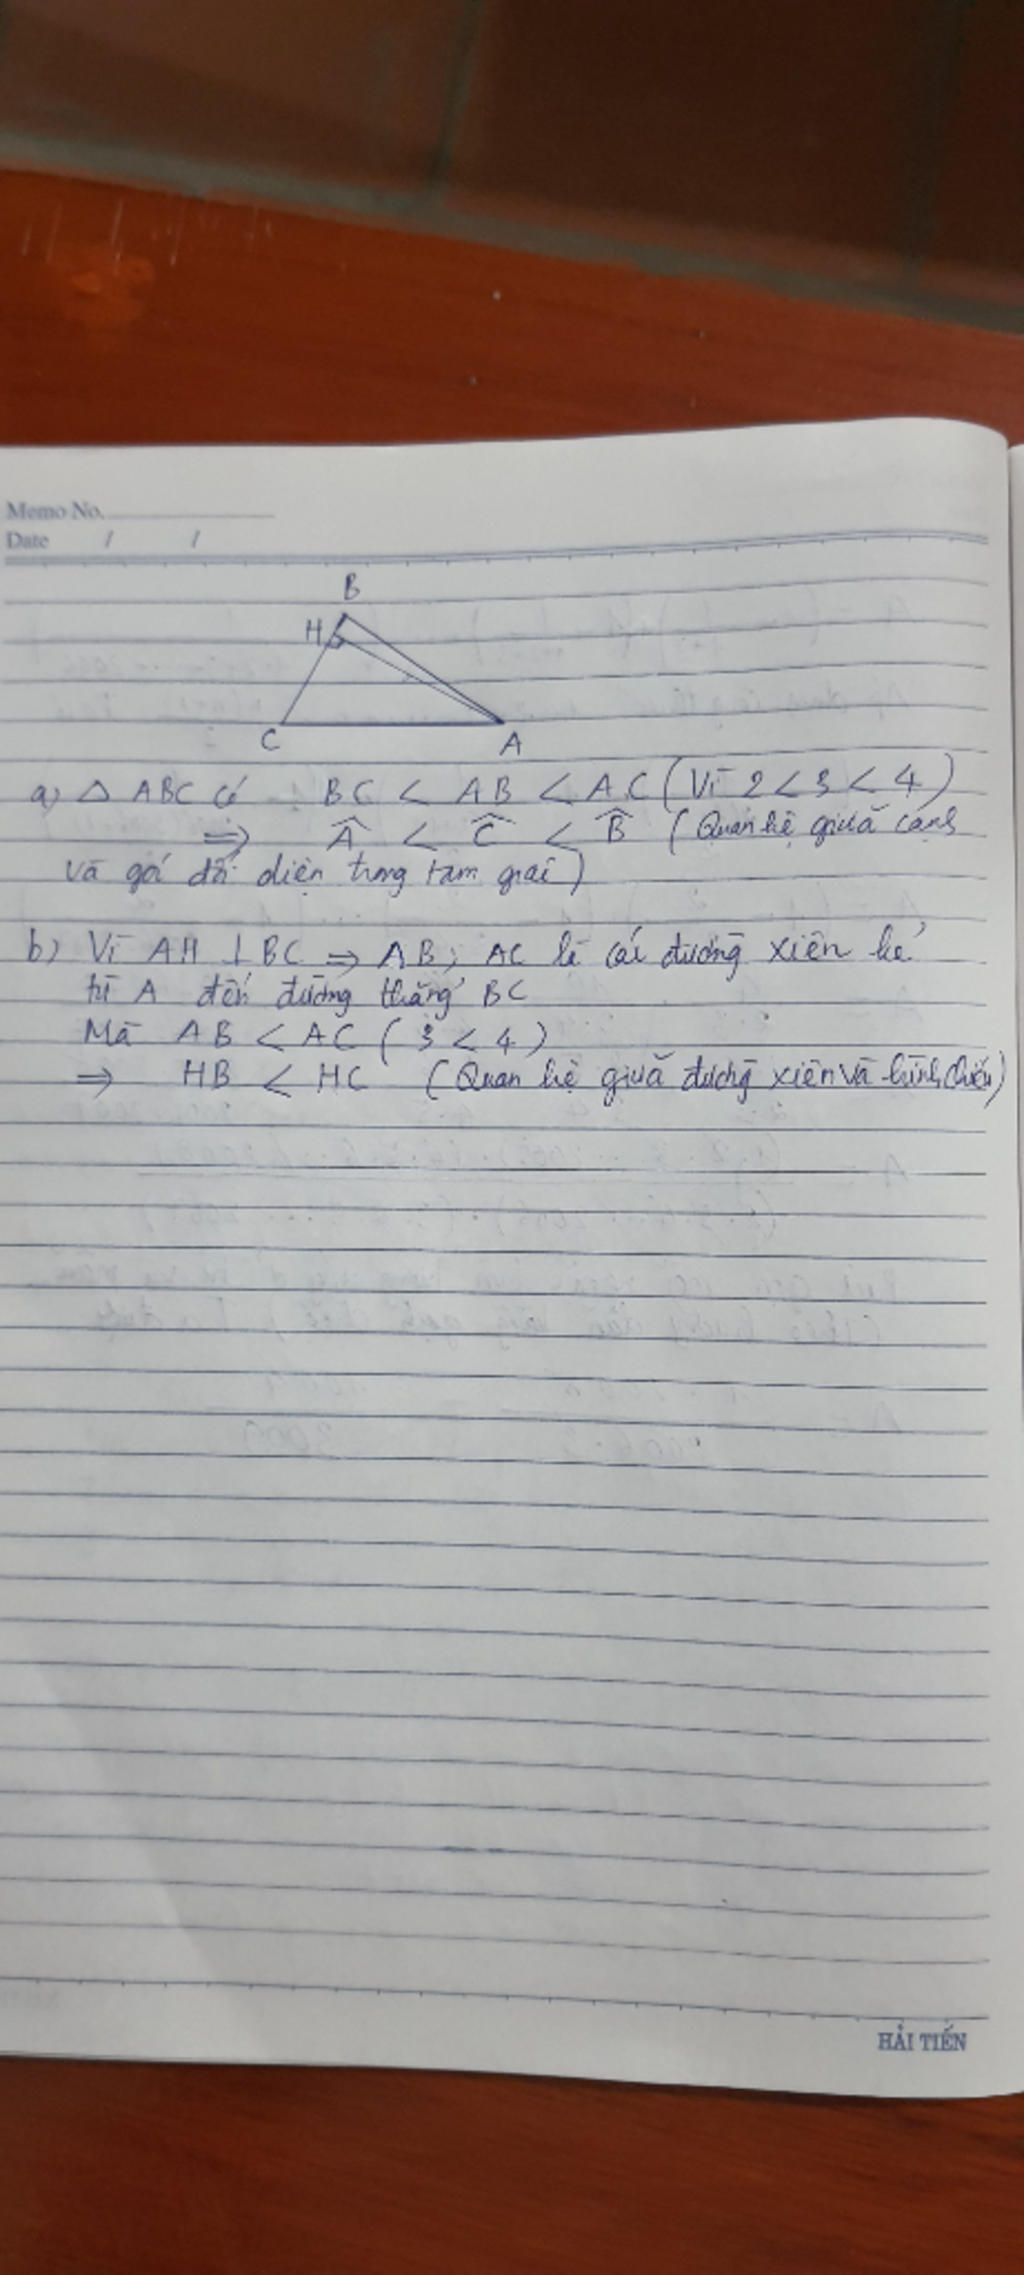 Memo No.
Date / /
B
H
C A
a) △ ABC có BC < AB < AC (Vì 2 < 3 < 4)
⇒ Â < Ĉ < B̂ (Quan hệ giữa cạnh
và góc đối diện trong tam giác)
b) Vì AH ⊥ BC ⇒ AB; AC là các đường xiên kẻ
từ A đến đường thẳng BC
Mà AB < AC (3 < 4)
⇒ HB < HC (Quan hệ giữa đường xiên và hình chiếu)
HẢI TIẾN